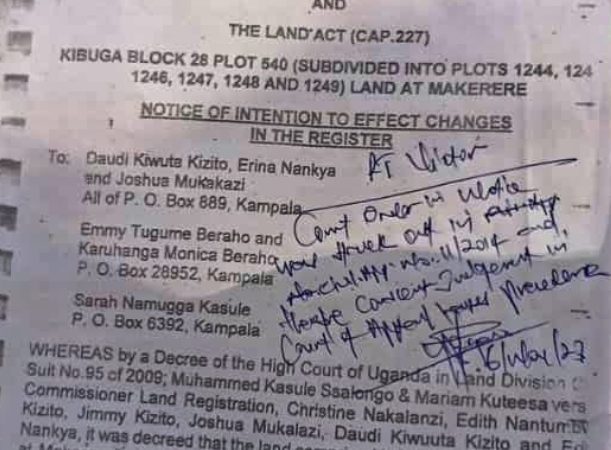 AND
THE LAND ACT (CAP.227)
KIBUGA BLOCK 28 PLOT 540 (SUBDIVIDED INTO PLOTS 1244, 124
1246, 1247, 1248 AND 1249) LAND AT MAKERERE
NOTICE OF INTENTION TO EFFECT CHANGES
IN THE REGISTER
To: Daudi Kiwuta Kizito, Erina Nankya
and Joshua Mukakazi
All of P. O. Box 889, Kampala
Emmy Tugume Beraho and
Karuhanga Monica Beraho
P. O. Box 28952, Kampala
Sarah Namugga Kasule
P. O. Box 6392, Kampala
Victor
Court Order in
was struck out in
No. 11/2014 and
therefore Consent Judgement in
Court of Appeal takes precedence
WHEREAS by a Decree of the High Court of Uganda in Land Division
Suit No.95 of 2009; Muhammed Kasule Ssalongo & Mariam Kuteesa vers
Commissioner Land Registration, Christine Nakalanzi, Edith Nantum
Kizito, Jimmy Kizito, Joshua Mukalazi, Daudi Kiwuuta Kizito and
Nankya, it was decreed that the land